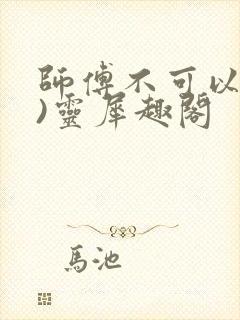 師傅不可以
)靈犀趣閣
馬池